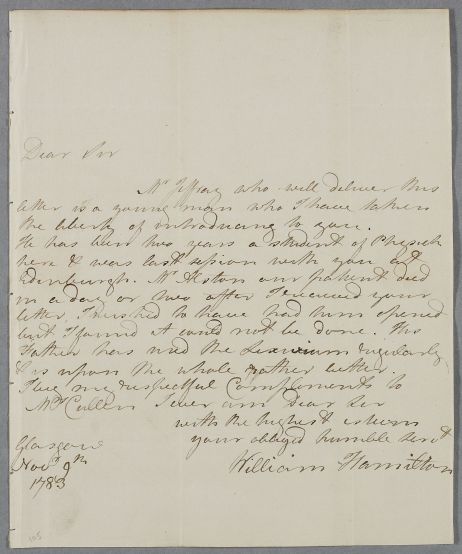 Dear Sir
Mr Jeffray who will deliver this
letter is a young man who I have taken
the liberty of introducing to you.
He has been two years a student of Physick
here & was last session with you at
Edinburgh. Mr Alston our patient died
in a day or two after I received your
letter, I wished to have had him opened
but I found it could not be done. His
Father has used the Lixivium regularly
& is upon the whole rather better.
I have my respectful Compliments to
Mrs Cullen I ever am Dear Sir
with the highest esteem
your obliged humble Servt
William Hamilton
Glasgow
Novr 9th
1783